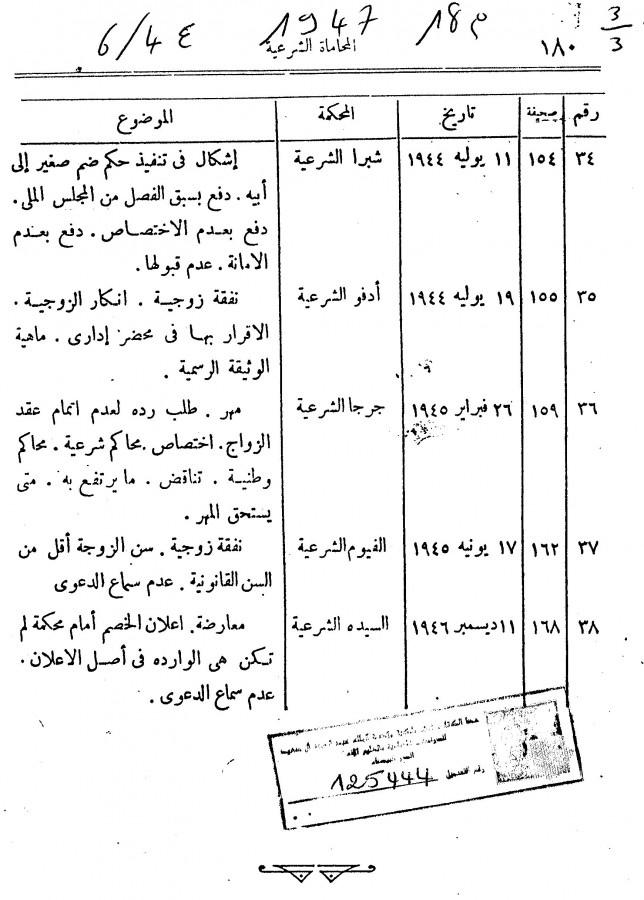 6/4٤ 1947 م18 3/3
المحاماة الشرعية ١٨٠
رقم صحيفة تاريخ المحكمة الموضوع
٣٤ ١٥٤ ١١ يوليه ١٩٤٤ شبرا الشرعية إشكال فى تنفيذ حكم ضم صغير إلى
أبيه . دفع بسبق الفصل من المجلس الملى .
دفع بعدم الاختصاص . دفع بعدم
الامانة . عدم قبولها .
٣٥ ١٥٥ ١٩ يوليه ١٩٤٤ أدفو الشرعية نفقة زوجية . انكار الزوجية .
الاقرار بها فى محضر إدارى . ماهية
الوثيقة الرسمية .
٣٦ ١٥٩ ٢٦ فبراير ١٩٤٥ جرجا الشرعية مهر . طلب رده لعدم اتمام عقد
الزواج. اختصاص . محاكم شرعية . محاكم
وطنية . تناقض . ما يرتفع به . متى
يستحق المهر .
٣٧ ١٦٢ ١٧ يونيه ١٩٤٥ الفيوم الشرعية نفقة زوجية . سن الزوجة أقل من
السن القانونية . عدم سماع الدعوى
٣٨ ١٦٨ ١١ ديسمبر ١٩٤٦ السيده الشرعية معارضة. اعلان الخصم أمام محكمة لم
تكن هى الوارده فى أصل الاعلان .
عدم سماع الدعوى .
رقم التسجيل 125444